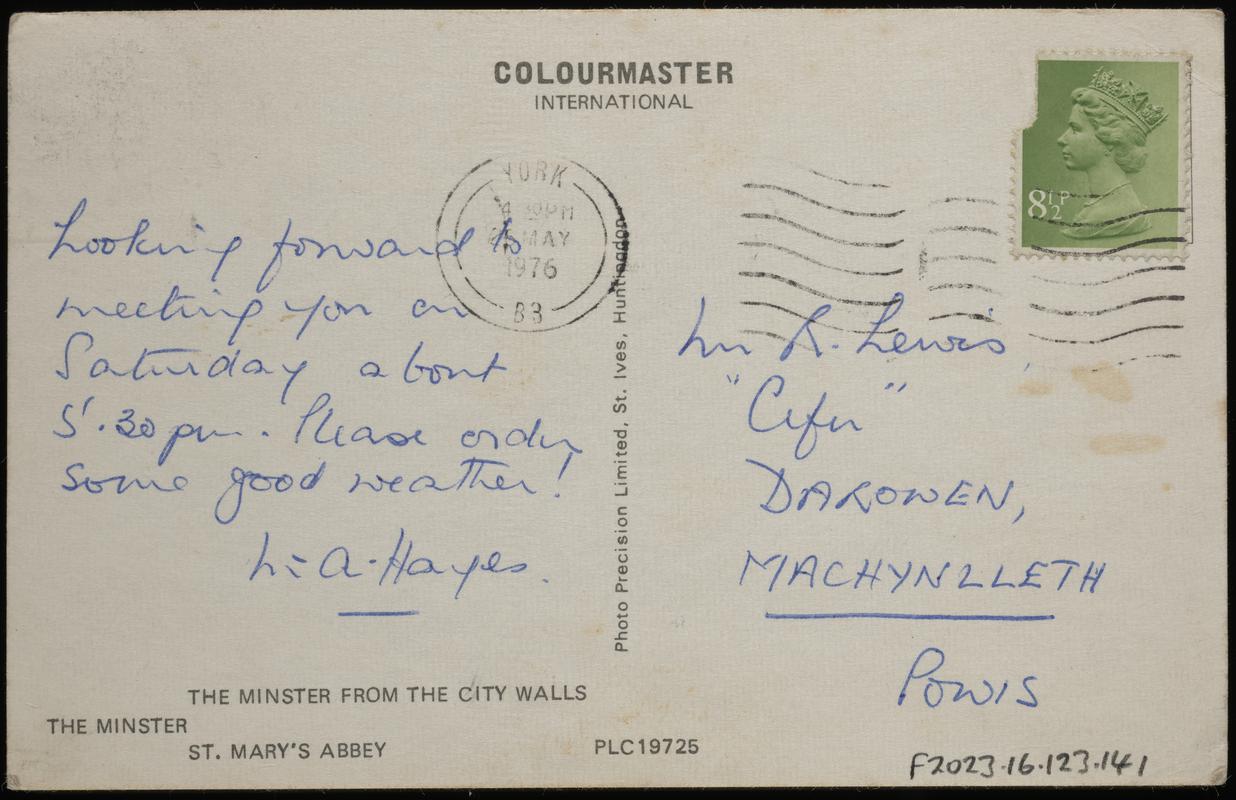 COLOURMASTER
INTERNATIONAL
8½P
YORK
PM
MAY
1976
Looking forward to
meeting you on
Saturday about
5.30 pm. Please order
some good weather!
A. Hayes.
Photo Precision Limited, St. Ives, Huntingdon
R. Lewis,
"Cefn"
DAROWEN,
MACHYNLLETH
POWIS
THE MINSTER FROM THE CITY WALLS
THE MINSTER
ST. MARY'S ABBEY
PLC19725
F2023.16.123.141